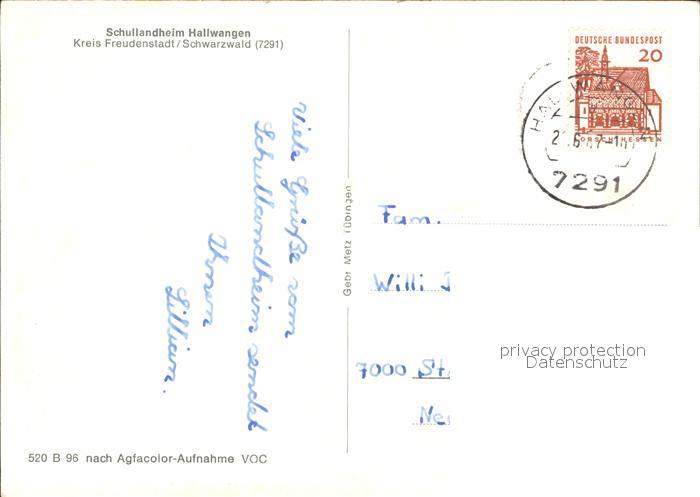 Schullandheim Hallwangen
Kreis Freudenstadt/Schwarzwald (7291)
DEUTSCHE BUNDESPOST
20
LORSCH/HESSEN
7291
Viele Grüße vom
Schullandheim sendet
Ihnen
Lillian.
Gebr Metz Tübingen
Fam.
Willi
7000 St
Ne
privacy protection
Datenschutz
520 B 96 nach Agfacolor-Aufnahme VOC